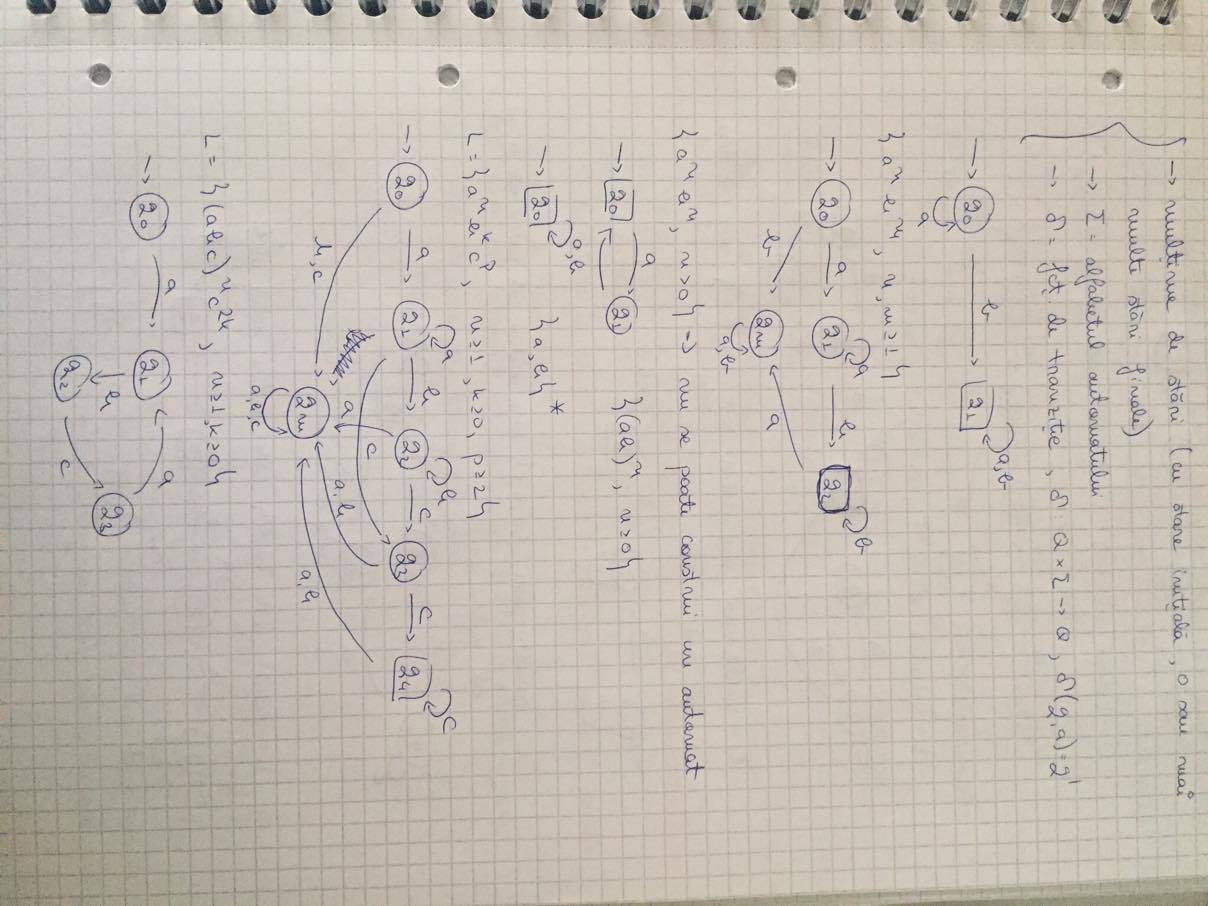 → mulțime de stări (cu stare inițială, o sau mai
multe stări finale)
→ Σ = alfabetul automatului
→ δ = fct de tranziție, δ Q × Σ → Q, δ(q,a)=q'
→ q0 b q1 a,b
a
{a^n b^m, n,m≥1}
→ q0 a q1 a b q2 b
b qm a,b a
{a^n b^n, n>0} → nu se poate construi un automat
→ q0 a q1 {(ab)^n, n≥0}
→ q0 a,b {a,b}*
L = {a^n b^k c^p, n≥1, k≥0, p≥2}
→ q0 a q1 a b q2 b c q3 c q4 c
b,c a c a,b a,b
qm a,b,c
L = {(abc)^n c^2k, n≥1, k≥0}
→ q0 a q1 a
b
q2 c q3